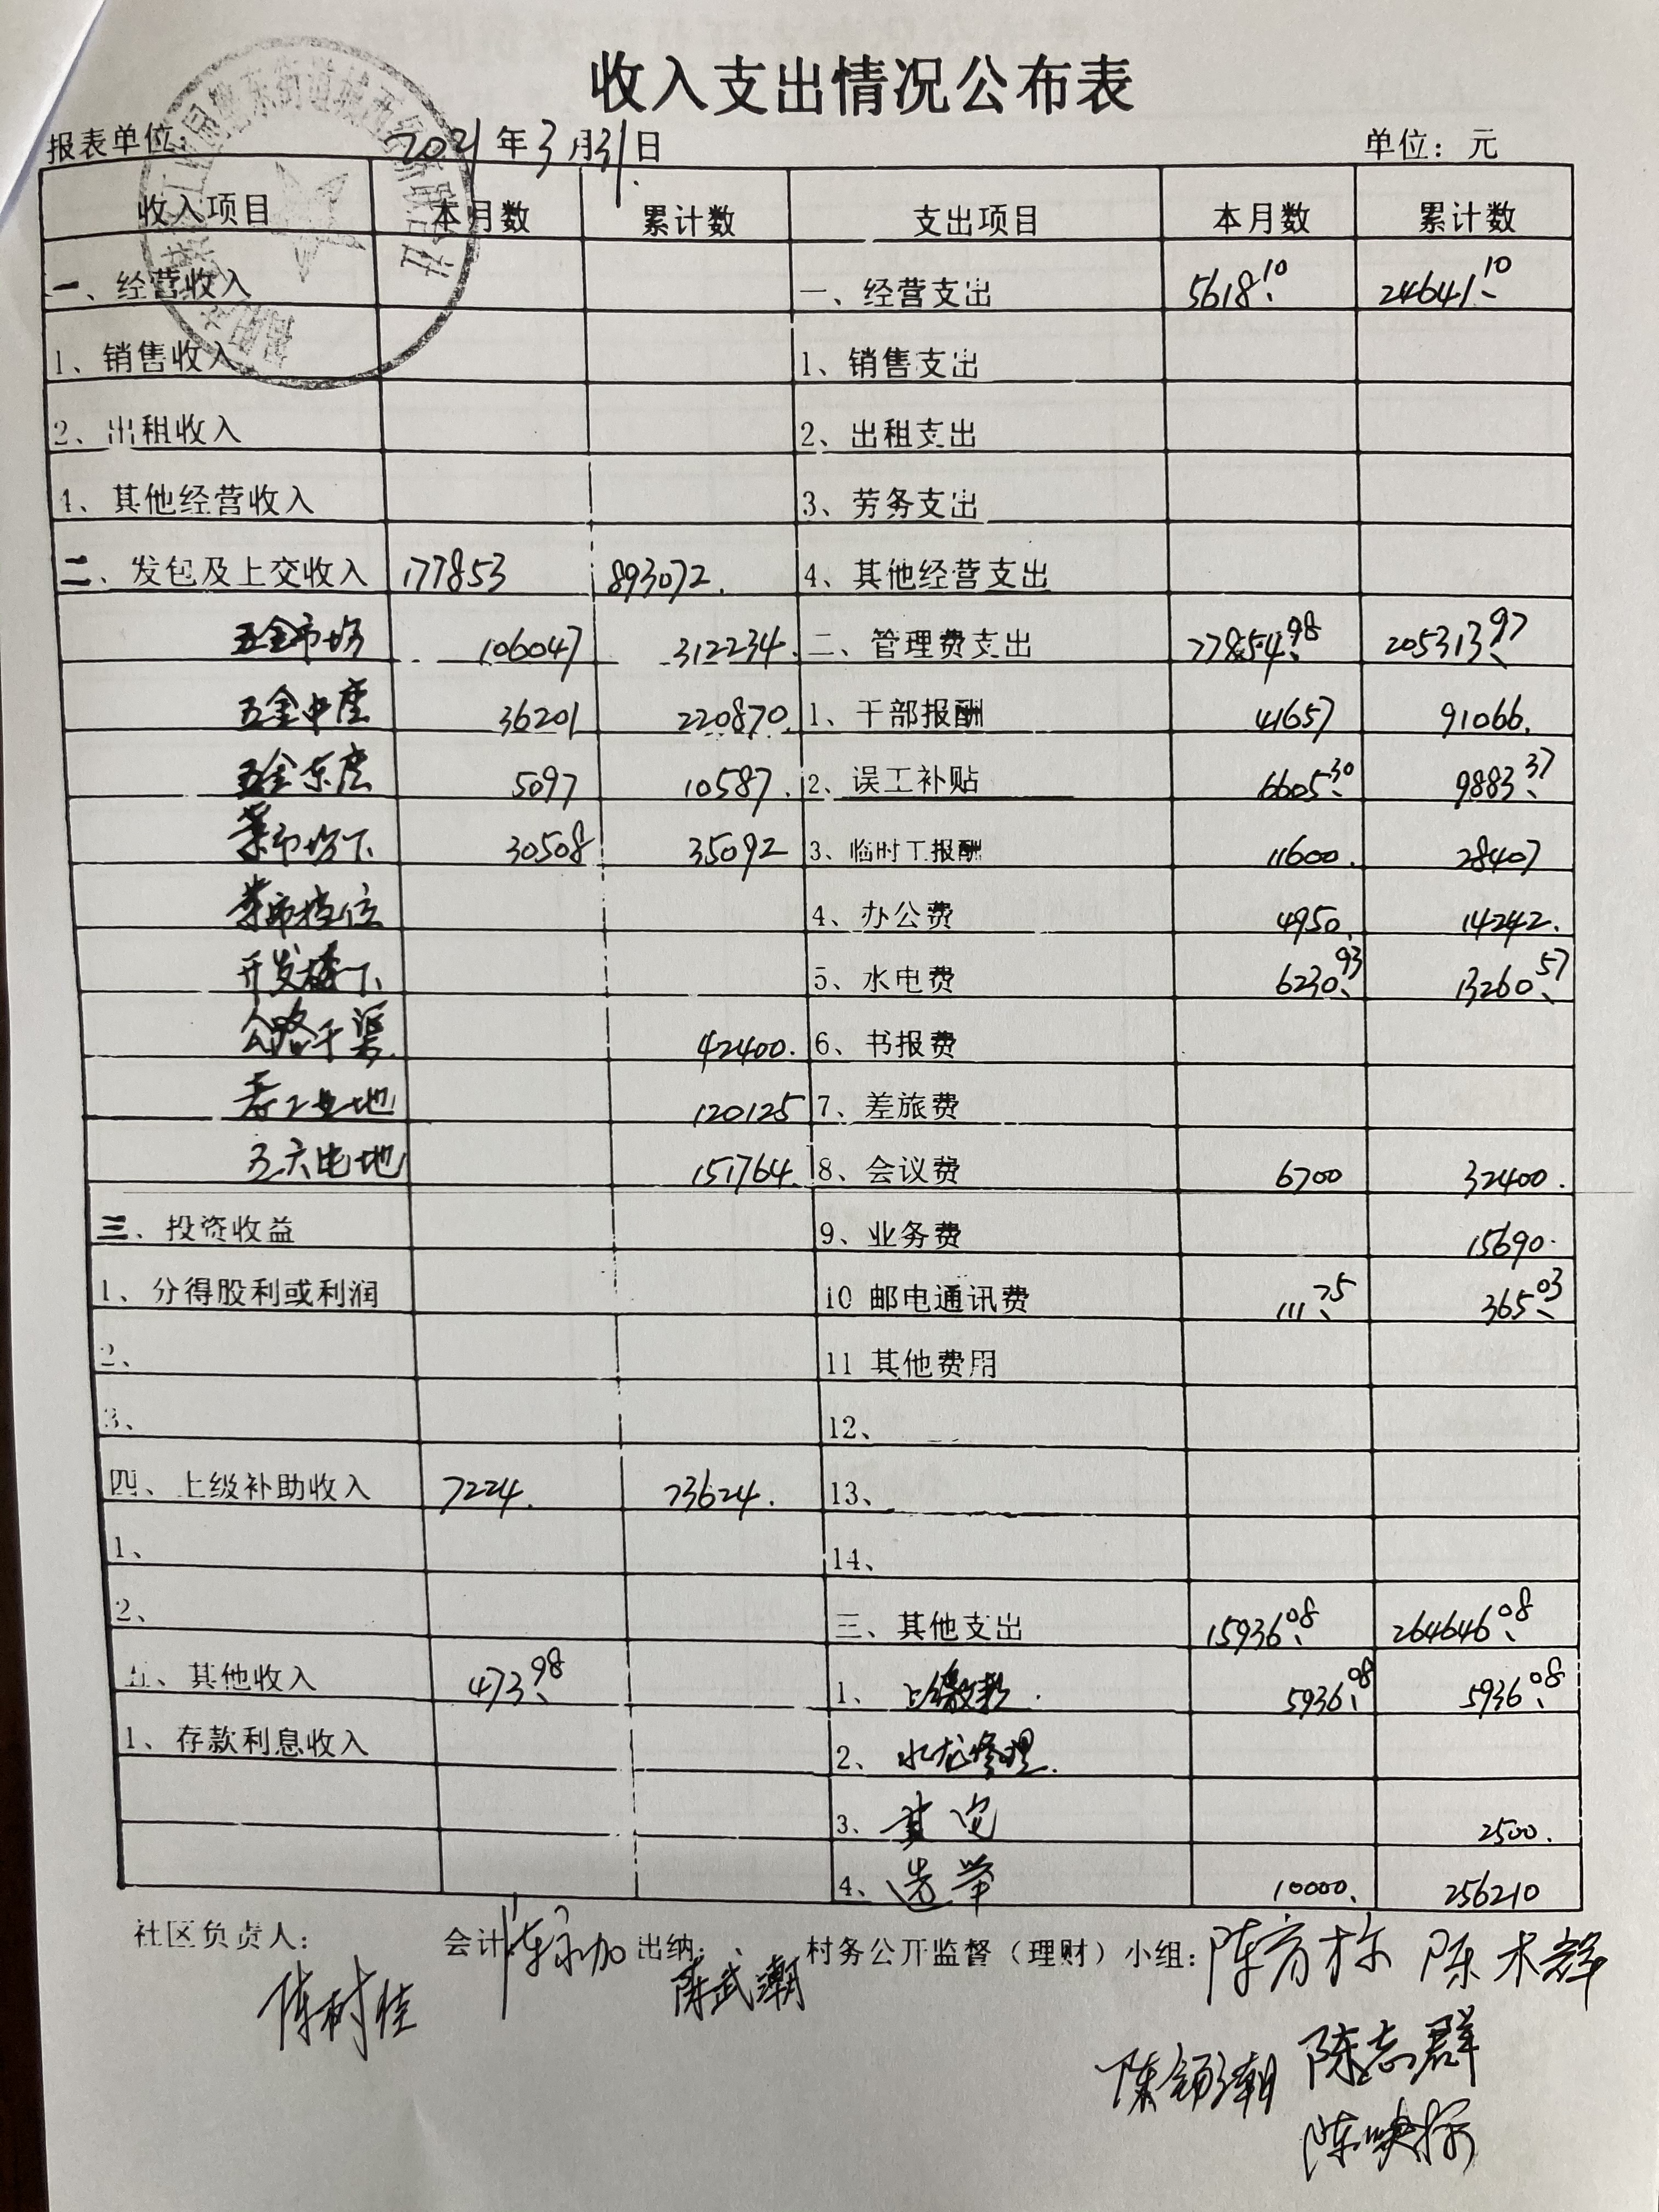 收入支出情况公布表
报表单位： 2021年3月31日 单位：元
收入项目 本月数 累计数 支出项目 本月数 累计数
一、经营收入 一、经营支出 5618.10 24641.10
1、销售收入 1、销售支出
2、出租收入 2、出租支出
4、其他经营收入 3、劳务支出
二、发包及上交收入 177853 893072. 4、其他经营支出
五金市场 106047 312234. 二、管理费支出 77854.98 205313.97
五金中座 36201 220870. 1、干部报酬 41657 91066.
五金东座 5097 10587. 2、误工补贴 6605.30 9883.37
菜市场下 30508 35092 3、临时工报酬 11600. 28407
菜市档位 4、办公费 4950. 14242.
开发楼下 5、水电费 6230.93 13260.57
公路干渠 42400. 6、书报费
工业地 120125 7、差旅费
地 151764. 8、会议费 6700 32400.
三、投资收益 9、业务费 15690.
1、分得股利或利润 10 邮电通讯费 111.75 365.03
2、 11 其他费用
3、 12、
四、上级补助收入 7224. 73624. 13、
1、 14、
2、 三、其他支出 15936.08 264646.08
五、其他收入 473.98 1、上缴款. 5936.08 5936.08
1、存款利息收入 2、水龙修理.
3、其它 2500.
4、选举 10000. 256210
社区负责人： 会计： 出纳： 村务公开监督（理财）小组： 陈木群
陈树佳 陈永加 陈武潮
陈志群